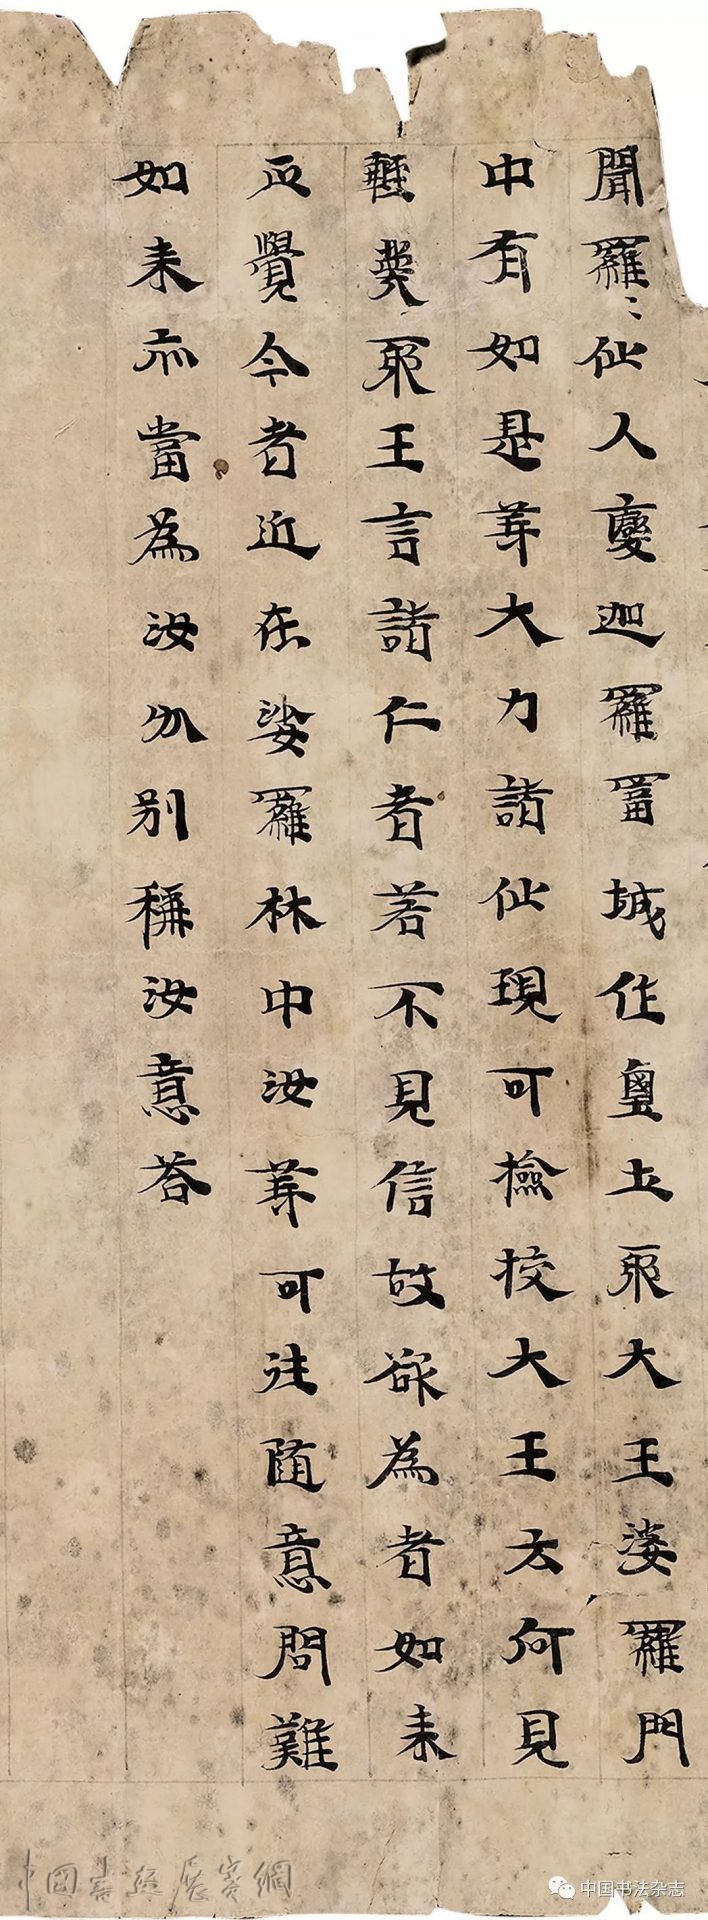 聞羅〻仙人變迦羅冨城作鹵土耶大王婆羅門
中有如是等大力諸仙現可撿挍大王云何見
輕蔑耶王言諸仁者若不見信故欲為者如来
正覺今者近在娑羅林中汝等可往随意問難
如来亦當為汝分别稱汝意荅
中國書法展賽網
中国书法杂志